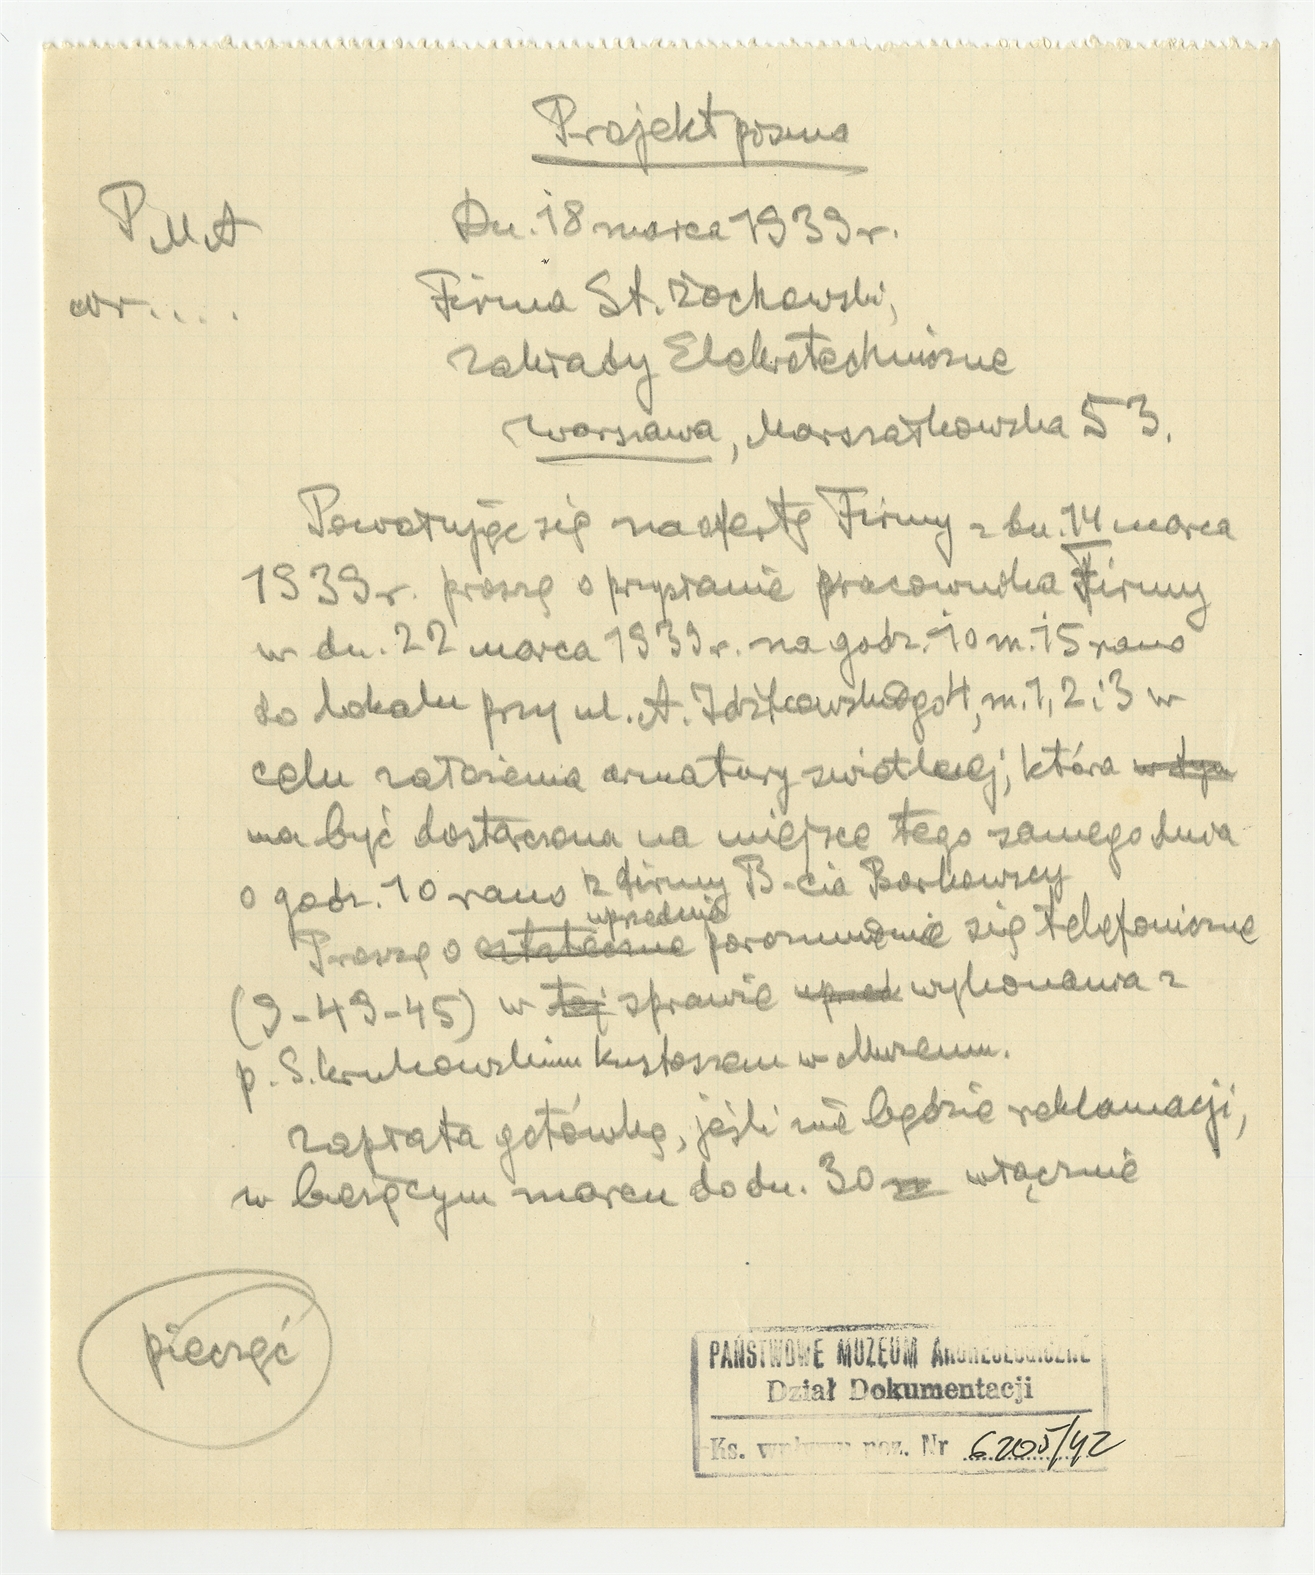 Projekt pisma
PMA
Dn. 18 marca 1939 r.
nr....
Firma St. Żochowski,
Zakłady Elektrotechniczne
Warszawa, Marszałkowska 53.
Powołując się na ofertę Firmy z dn. 14 marca
1939 r. proszę o przysłanie pracownika Firmy
w dn. 22 marca 1939 r. na godz. 10 m. 15 rano
do lokalu przy ul. A. Idzikowskiego 4, m. 1, 2 i 3 w
celu założenia armatury świetlnej, która w dyn
ma być dostarczona na miejsce tego samego dnia
o godz. 10 rano z firmy B-cia Borkowscy
uprzednie
Proszę o ostateczne porozumienie się telefoniczne
(9-49-45) w tej sprawie uprzed wykonania z
p. S. Krukowskim kustoszem w Muzeum.
Zapłata gotówką, jeśli nie będzie reklamacji,
w bieżącym marcu do dn. 30 włącznie
pieczęć
PAŃSTWOWE MUZEUM ARCHEOLOGICZNE
Dział Dokumentacji
Ks. wpływu poz. Nr 6205/42